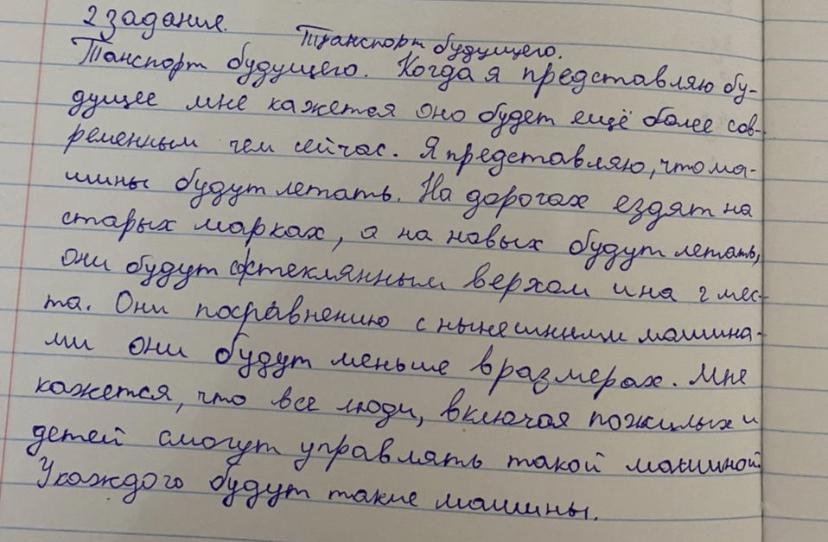 2 задание.
Транспорт будущего.
Танспорт будущего. Когда я представляю бу-
дущее мне кажется оно будет ещё более сов-
ременным чем сейчас. Я представляю, что ма-
шины будут летать. На дорогах ездят на
старых марках, а на новых будут летать,
они будут стеклянным верхом и на 2 мес-
та. Они посравнению с нынешними машина-
ми они будут меньше в размерах. Мне
кажется, что все люди, включая пожилых и
детей смогут управлять такой машиной.
У каждого будут такие машины.